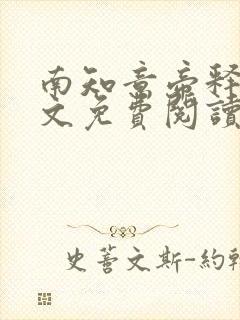 南知意帝释
文免費閱讀
史蒈文斯-約翰